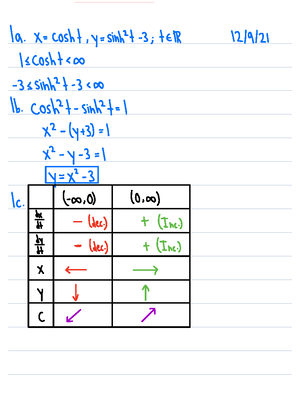 1a. x=cosht, y=sinh²t-3; t∈ℝ 12/9/21
1≤cosht<∞
-3≤sinh²t-3<∞
1b. cosh²t-sinh²t=1
x²-(y+3)=1
x²-y-3=1
y=x²-3
1c. (-∞,0) (0,∞)
dx/dt - (dec.) + (Inc.)
dy/dt - (dec.) + (Inc.)
x ← →
y ↓ ↑
C ↙ ↗